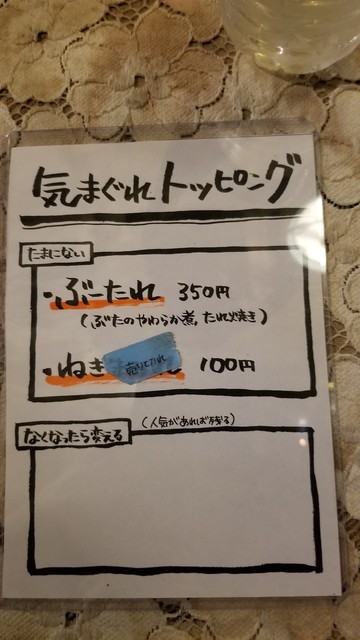 気まぐれトッピング
たまにない
・ぶーたれ 350円
(ぶたのやわらか煮,たれ焼き)
・ねぎ 100円
なくなったら変える
(人気があれば残る)